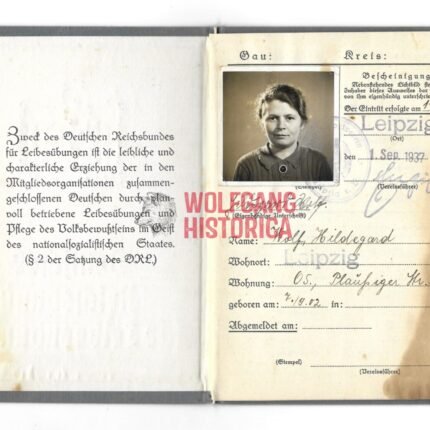 Zweck des Deutschen Reichsbundes
für Leibesübungen ist die leibliche und
charakterliche Erziehung der in den
Mitgliedsorganisationen zusammen-
geschlossenen Deutschen durch plan
voll betriebene Leibesübungen und
Pflege des Volksbewußtseins im Geist
des nationalsozialistischen Staates.
(§ 2 der Satzung des DRL.)
WOLFGANG
HISTORICA
Gau: Kreis:
Bescheinigung
Nebenstehendes Lichtbild
Inhaber dieses Ausweises
von ihm eigenhändig
Der Eintritt erfolgte am 1
Leipzig
(Ort)
den 1. Sep. 1937
(Stempel) (Vereinsführer)
(Eigenhändige Unterschrift)
Name: Wolf, Hildegard
Wohnort: Leipzig
Wohnung: O5, Plaußiger Str.
geboren am: in:
Abgemeldet am:
(Stempel) (Vereinsführer)